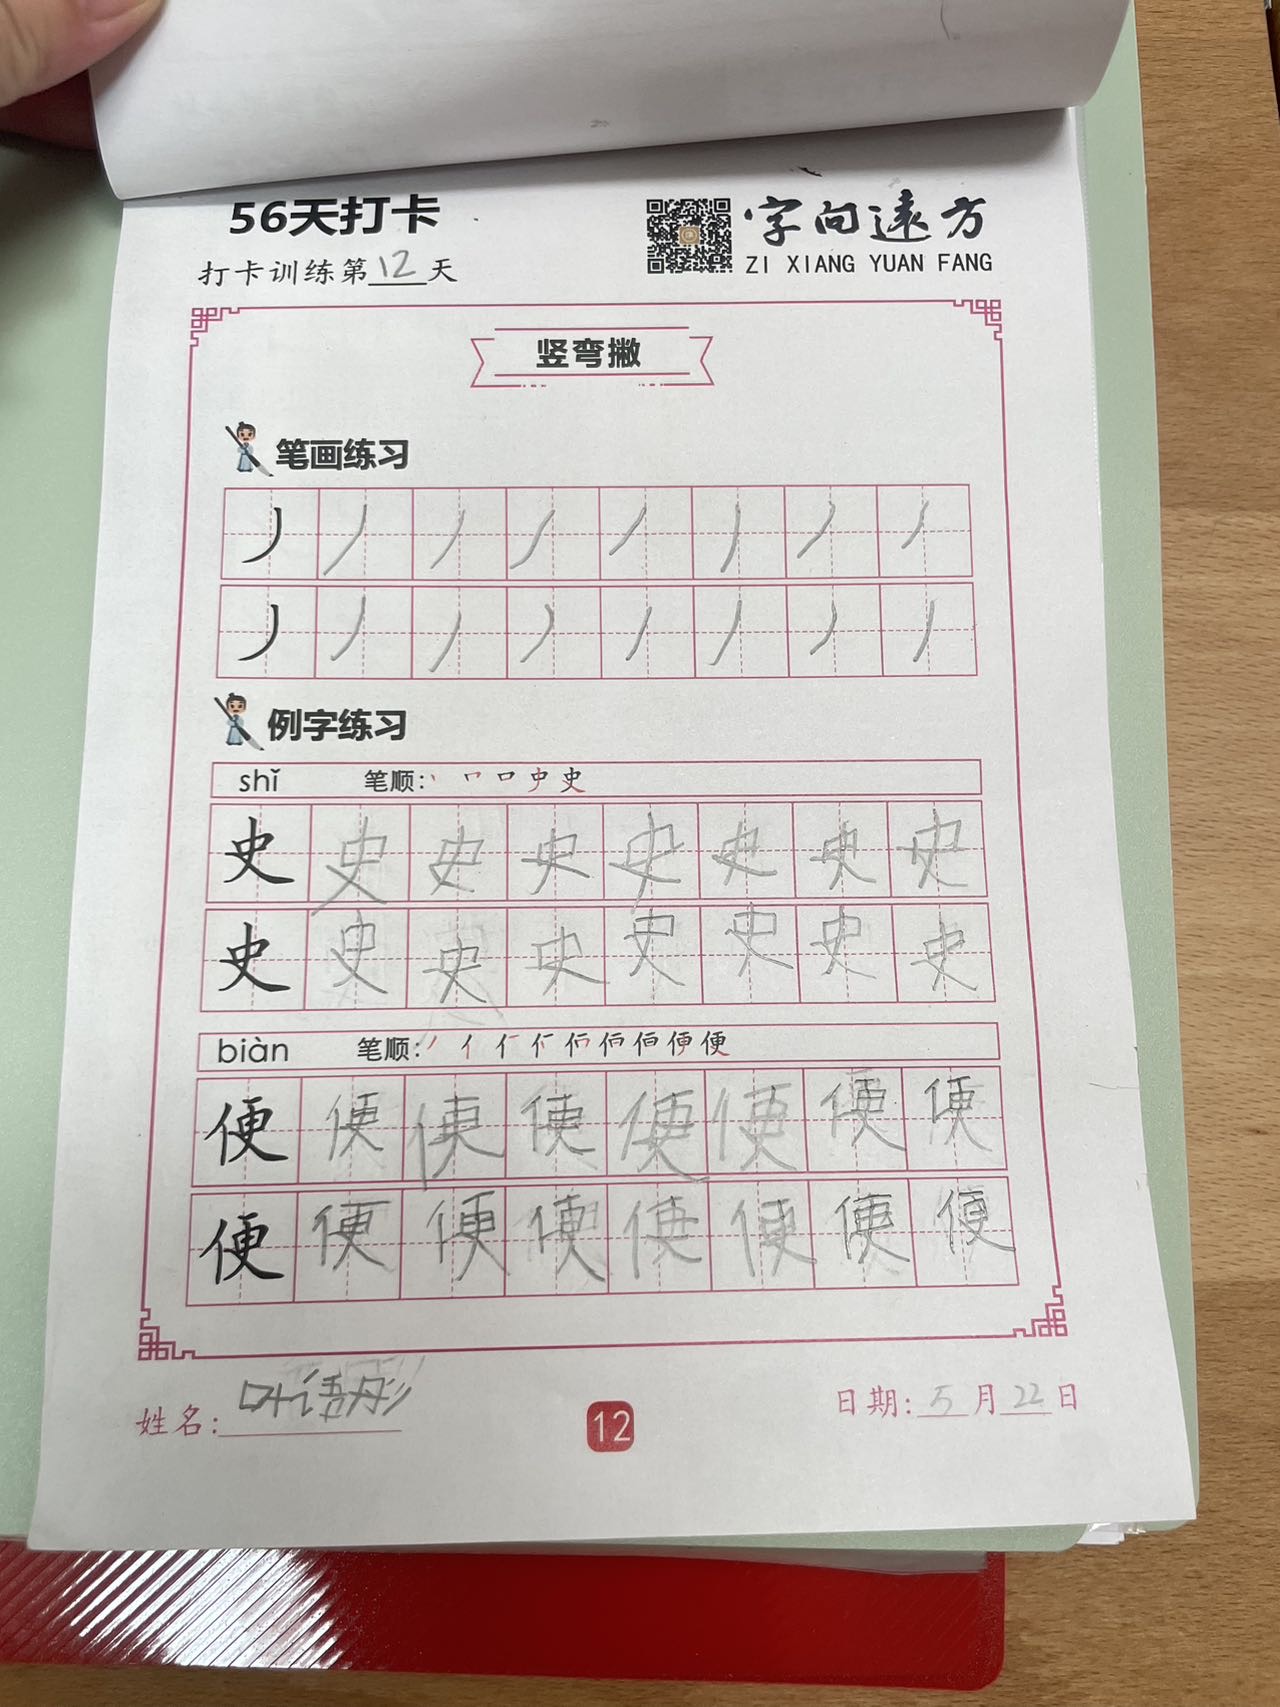 56天打卡
字向遠方
打卡训练第12天
ZI XIANG YUAN FANG
竖弯撇
笔画练习
丿 丿 丿 丿 丿 丿 丿 丿
丿 丿 丿 丿 丿 丿 丿 丿
例字练习
shǐ 笔顺:
史 史 史 史 史 史 史 史
史 史 史 史 史 史 史 史
biàn 笔顺:
便 便 便 便 便 便 便 便
便 便 便 便 便 便 便 便
姓名: 叶语彤
12
日期: 5月22日